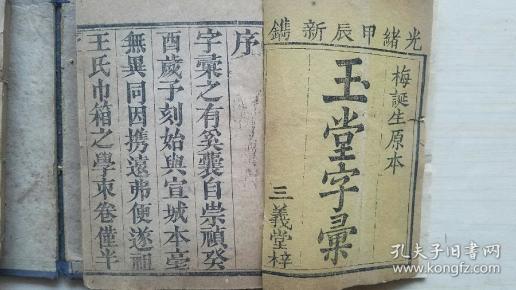 光緒甲辰新鐫
梅誕生原本
玉堂字彙
三義堂梓
序
字彙之有奚囊自崇禎癸
酉歲子刻始與宣城本毫
無異同因携遠弗便遂祖
王氏巾箱之學束卷僅半
孔夫子旧书网
www.kongfz.com